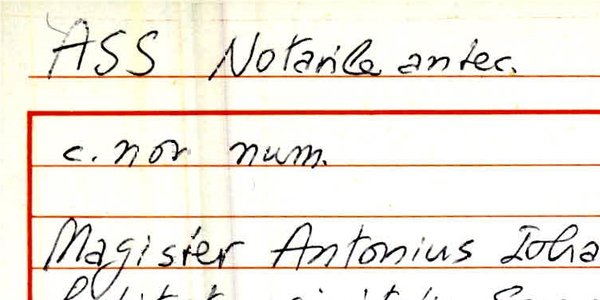 ASS Notarile antec.
c. nor num.
Magister Antonius Ioha